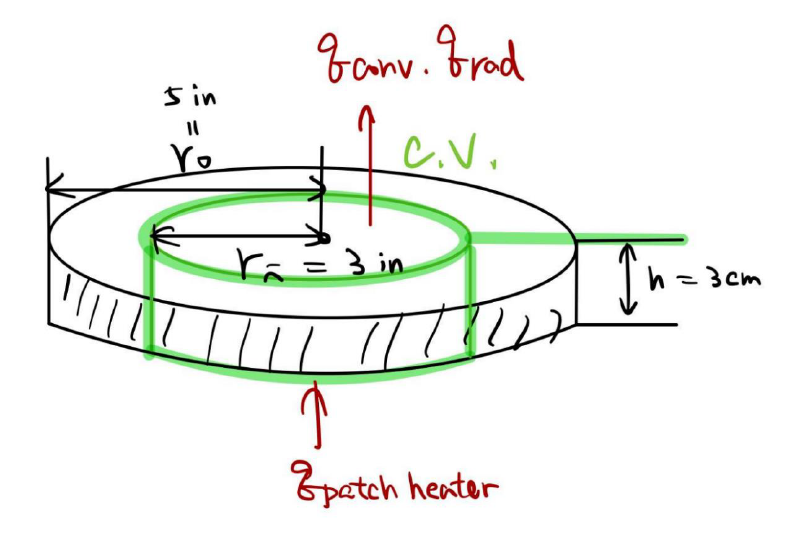 qconv. qrad
5 in
=
ro
C.V.
ri = 3 in
h = 3cm
qpatch heater